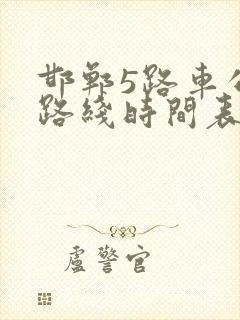 邯鄲5路車公
路綫時間表
盧警官